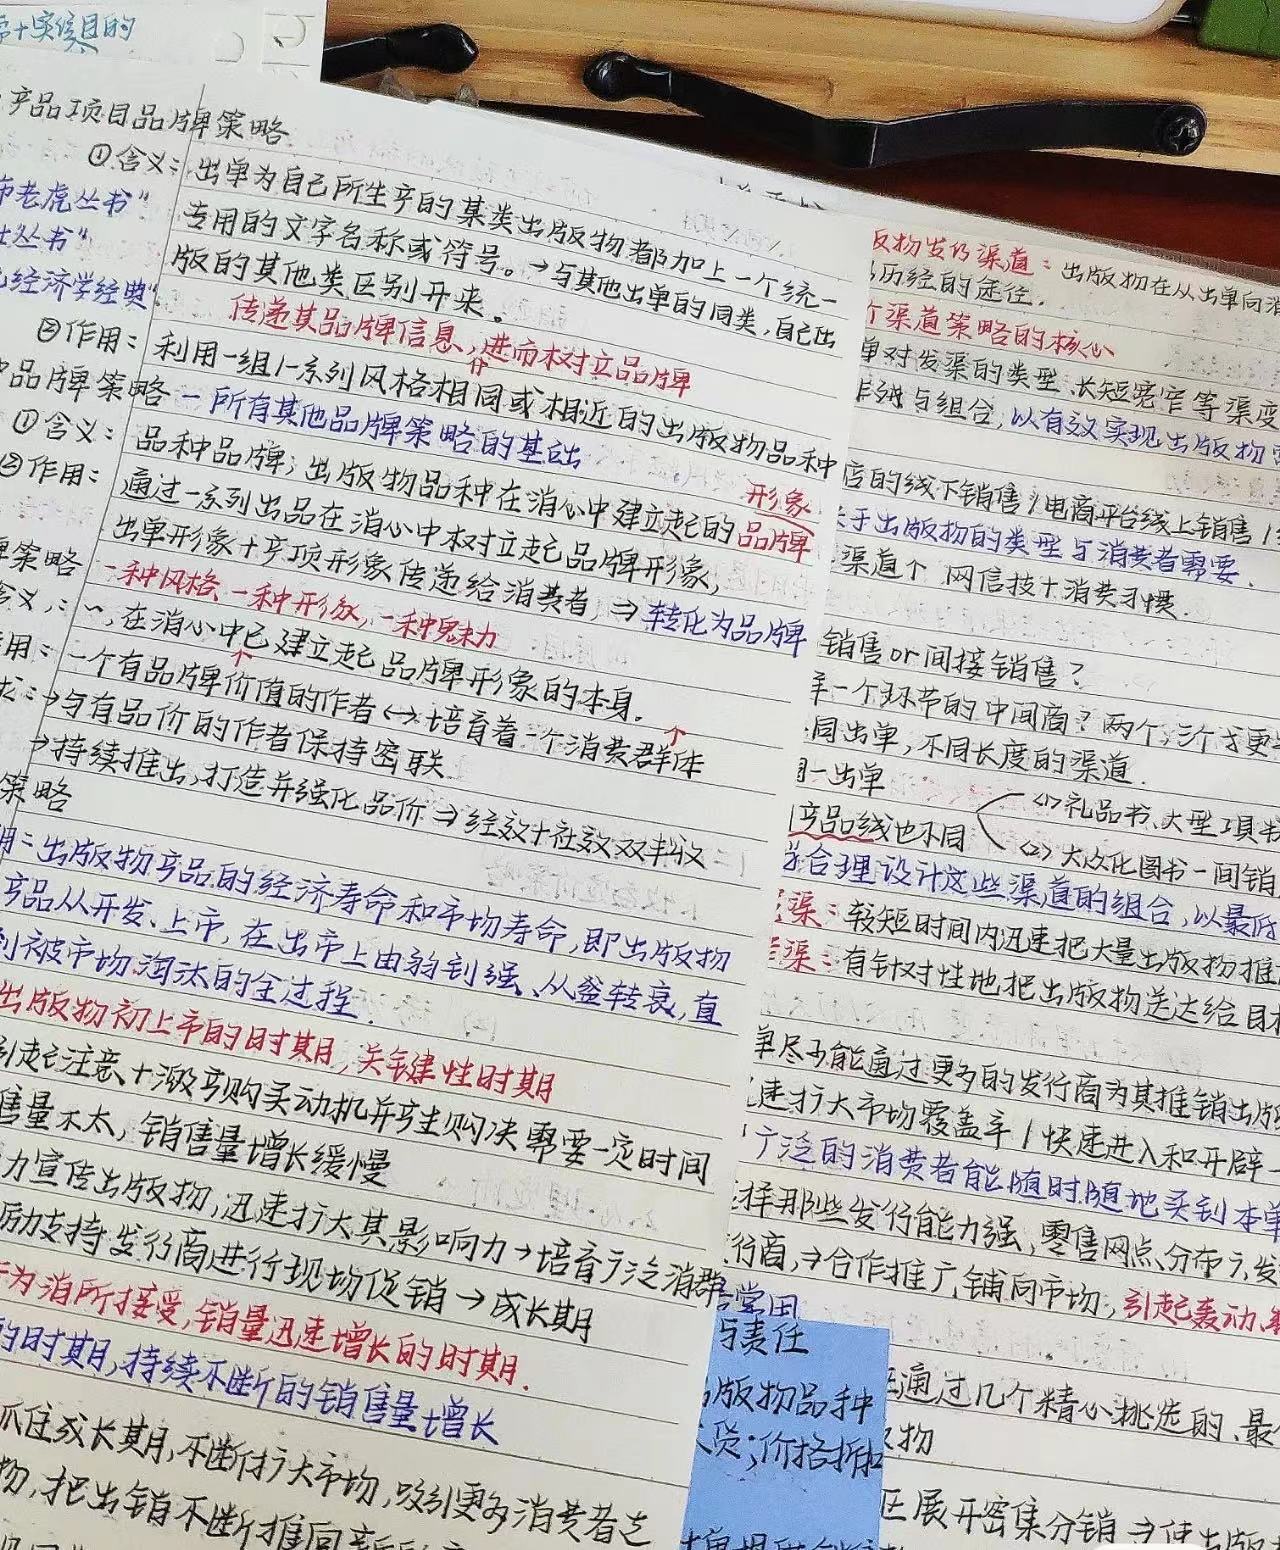 产品项目品牌策略
①含义:出单为自己所生产的某类出版物都加上一个统一
市老虎丛书"
专用的文字名称或符号。→与其他出单的同类,自己出
丛书"
版的其他类区别开来。
经济学经典"
传递其品牌信息,进而树立品牌
②作用:利用一组/一系列风格相同或相近的出版物品种
品牌策略-所有其他品牌策略的基础
①含义:品种品牌;出版物品种在消心中建立起的品牌
形象
②作用:通过一系列出品在消心中树立起品牌形象,
出单形象+产项形象传递给消费者,⇒转化为品牌
策略 一种风格、一种形象,一种魅力
含义:~,在消心中已建立起品牌形象的本身。
用:一个有品牌价值的作者↔培育着一个消费群体
→与有品价的作者保持密联
→持续推出,打造并强化品价⇒经效+社效双丰收
策略
用:出版物产品的经济寿命和市场寿命,即出版物
产品从开发、上市,在出市上由弱到强、从盛转衰,直
到被市场淘汰的全过程.
出版物初上市的时期,关键性时期
引起注意+激产购买动机并产生购决需要一定时间
售量不太,销售量增长缓慢
力宣传出版物,迅速扩大其影响力→培育广泛消群
励支持发行商进行现场促销→成长期
为消所接受,销量迅速增长的时期.
的时期,持续不断的销售量增长
抓住成长期,不断扩大市场,吸引更多消费者去
物,把出销不断推向
版物发行渠道:出版物在从出单向消
历经的途径.
渠道策略的核心
单对发渠的类型、长短宽窄等渠变
与组合,以有效实现出版物
店的线下销售/电商平台线上销售/
于出版物的类型与消费者需要.
渠道个 网信技+消费习惯.
销售or间接销售?
一个环节的中间商?两个,三个才更
同出单,不同长度的渠道.
同一出单
产品线也不同 <1>礼品书、大型工具书
<2>大众化图书-间销
合理设计这些渠道的组合,以最低
渠:较短时间内迅速把大量出版物推
渠:有针对性地把出版物送达给目标
单尽可能通过更多的发行商为其推销出版
速扩大市场覆盖率/快速进入和开辟一
广泛的消费者能随时随地买到本单
择那些发行能力强,零售网点分布广,发
行商,→合作推广,铺向市场,引起轰动、
与责任
版物品种
货;价格折扣
通过几个精心挑选的、最
物
区展开密集分销⇒使出版